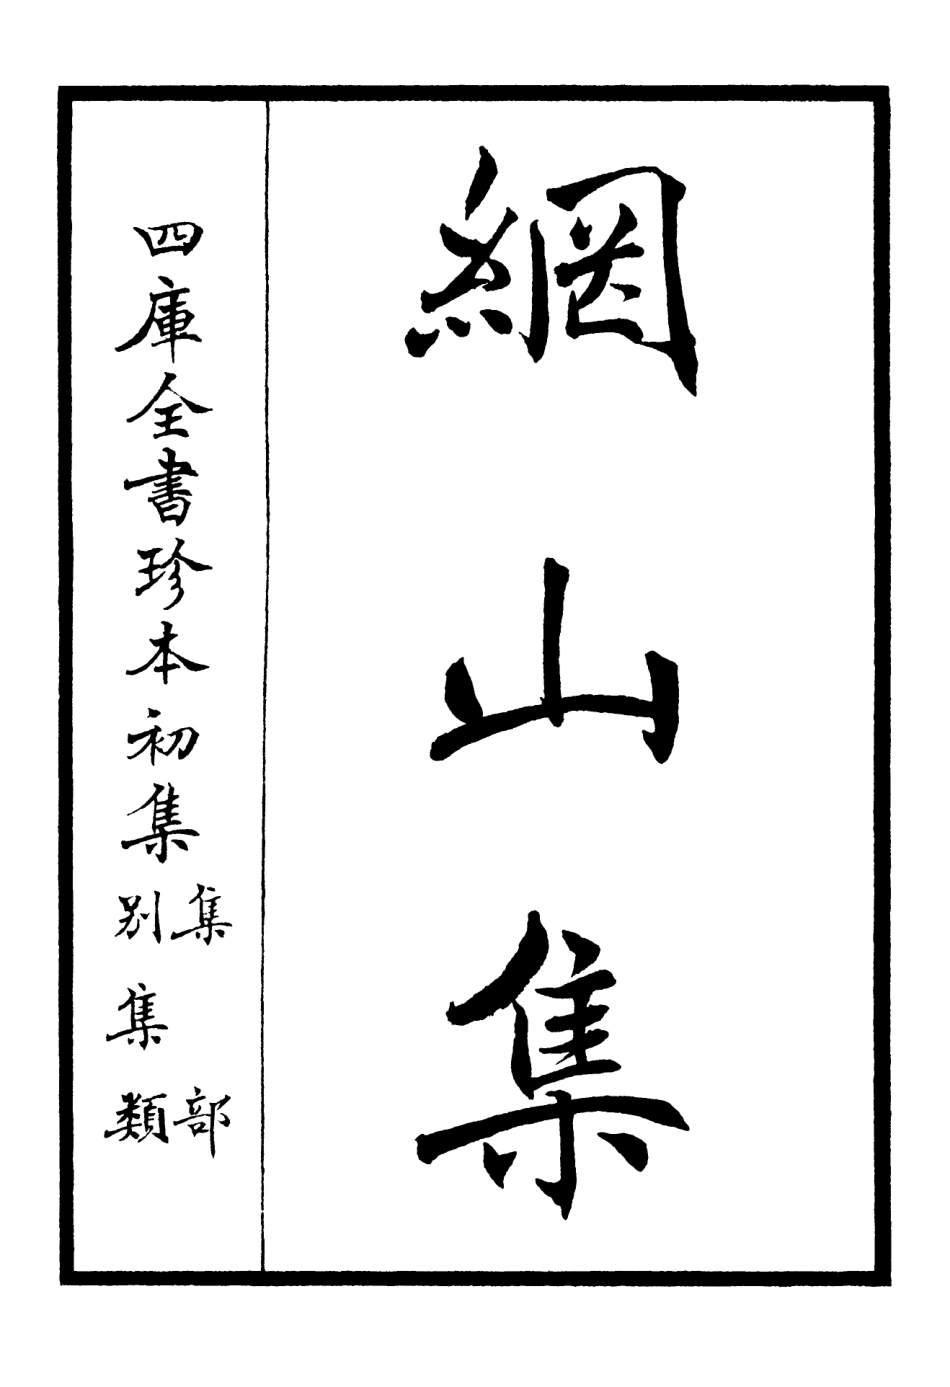 網山集
四庫全書珍本初集
集部
別集類